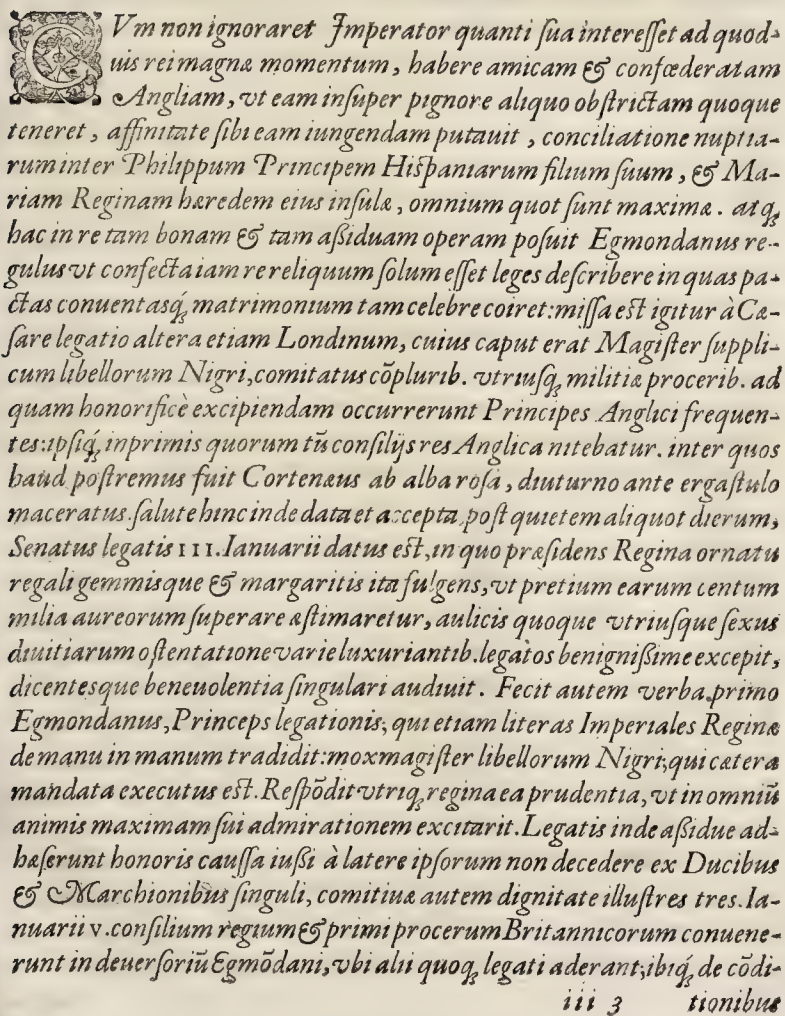 CVm non ignoraret Imperator quanti ſua intereſſet ad quod-
uis rei magnæ momentum, habere amicam & confœderatam
Angliam, vt eam inſuper pignore aliquo obſtrictam quoque
teneret, affinitate ſibi eam iungendam putauit, conciliatione nuptia-
rum inter Philippum Principem Hiſpaniarum filium ſuum, & Ma-
riam Reginam hæredem eius inſulæ, omnium quot ſunt maximæ. atq;
hac in re tam bonam & tam aßiduam operam poſuit Egmondanus re-
gulus vt confecta iam re reliquum ſolum eſſet leges deſcribere in quas pa-
ctas conuentasq́; matrimonium tam celebre coiret: miſſa eſt igitur à Cæ-
ſare legatio altera etiam Londinum, cuius caput erat Magiſter ſuppli-
cum libellorum Nigri, comitatus cōplurib. vtriuſq; militiæ procerib. ad
quam honorificè excipiendam occurrerunt Principes Anglici frequen-
tes: ipſiq́; inprimis quorum tū conſilijs res Anglica nitebatur. inter quos
haud poſtremus fuit Cortenæus ab alba roſa, diuturno ante ergaſtulo
maceratus. ſalute hinc inde data et accepta, poſt quietem aliquot dierum,
Senatus legatis III. Ianuarii datus eſt, in quo præſidens Regina ornatu
regali gemmisque & margaritis ita fulgens, vt pretium earum centum
milia aureorum ſuperare æſtimaretur, aulicis quoque vtriuſque ſexus
diuitiarum oſtentatione varie luxuriantib. legatos benignißime excepit,
dicentesque beneuolentia ſingulari audiuit. Fecit autem verba primo
Egmondanus, Princeps legationis, qui etiam literas Imperiales Reginæ
de manu in manum tradidit: mox magiſter libellorum Nigri, qui cætera
mandata executus eſt. Reſpōdit vtriq; regina ea prudentia, vt in omniū
animis maximam ſui admirationem excitarit. Legatis inde aßidue ad-
hæſerunt honoris cauſſa iußi à latere ipſorum non decedere ex Ducibus
& Marchionibus ſinguli, comitiua autem dignitate illuſtres tres. Ia-
nuarii v. conſilium regium & primi procerum Britannicorum conuene-
runt in deuerſoriū Egmōdani, vbi alii quoq; legati aderant, ibiq́; de cōdi-
iii 3 tionibus